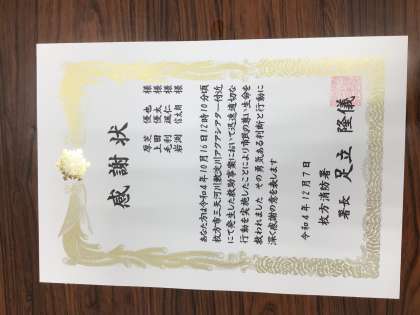 感謝状
厚芝 優也 様
上田 様
毛利 様
岩渕 様
あなた方は令和4年10月16日12時10分頃
枚方市三矢河川敷淀川アクアシアター付近
にて発生した救助事案において迅速適切な
行動を実施したことにより市民の尊い生命を
救われました その勇気ある判断と行動に
深く感謝の意を表します
令和4年12月7日
枚方消防署
署長 足立 隆儀